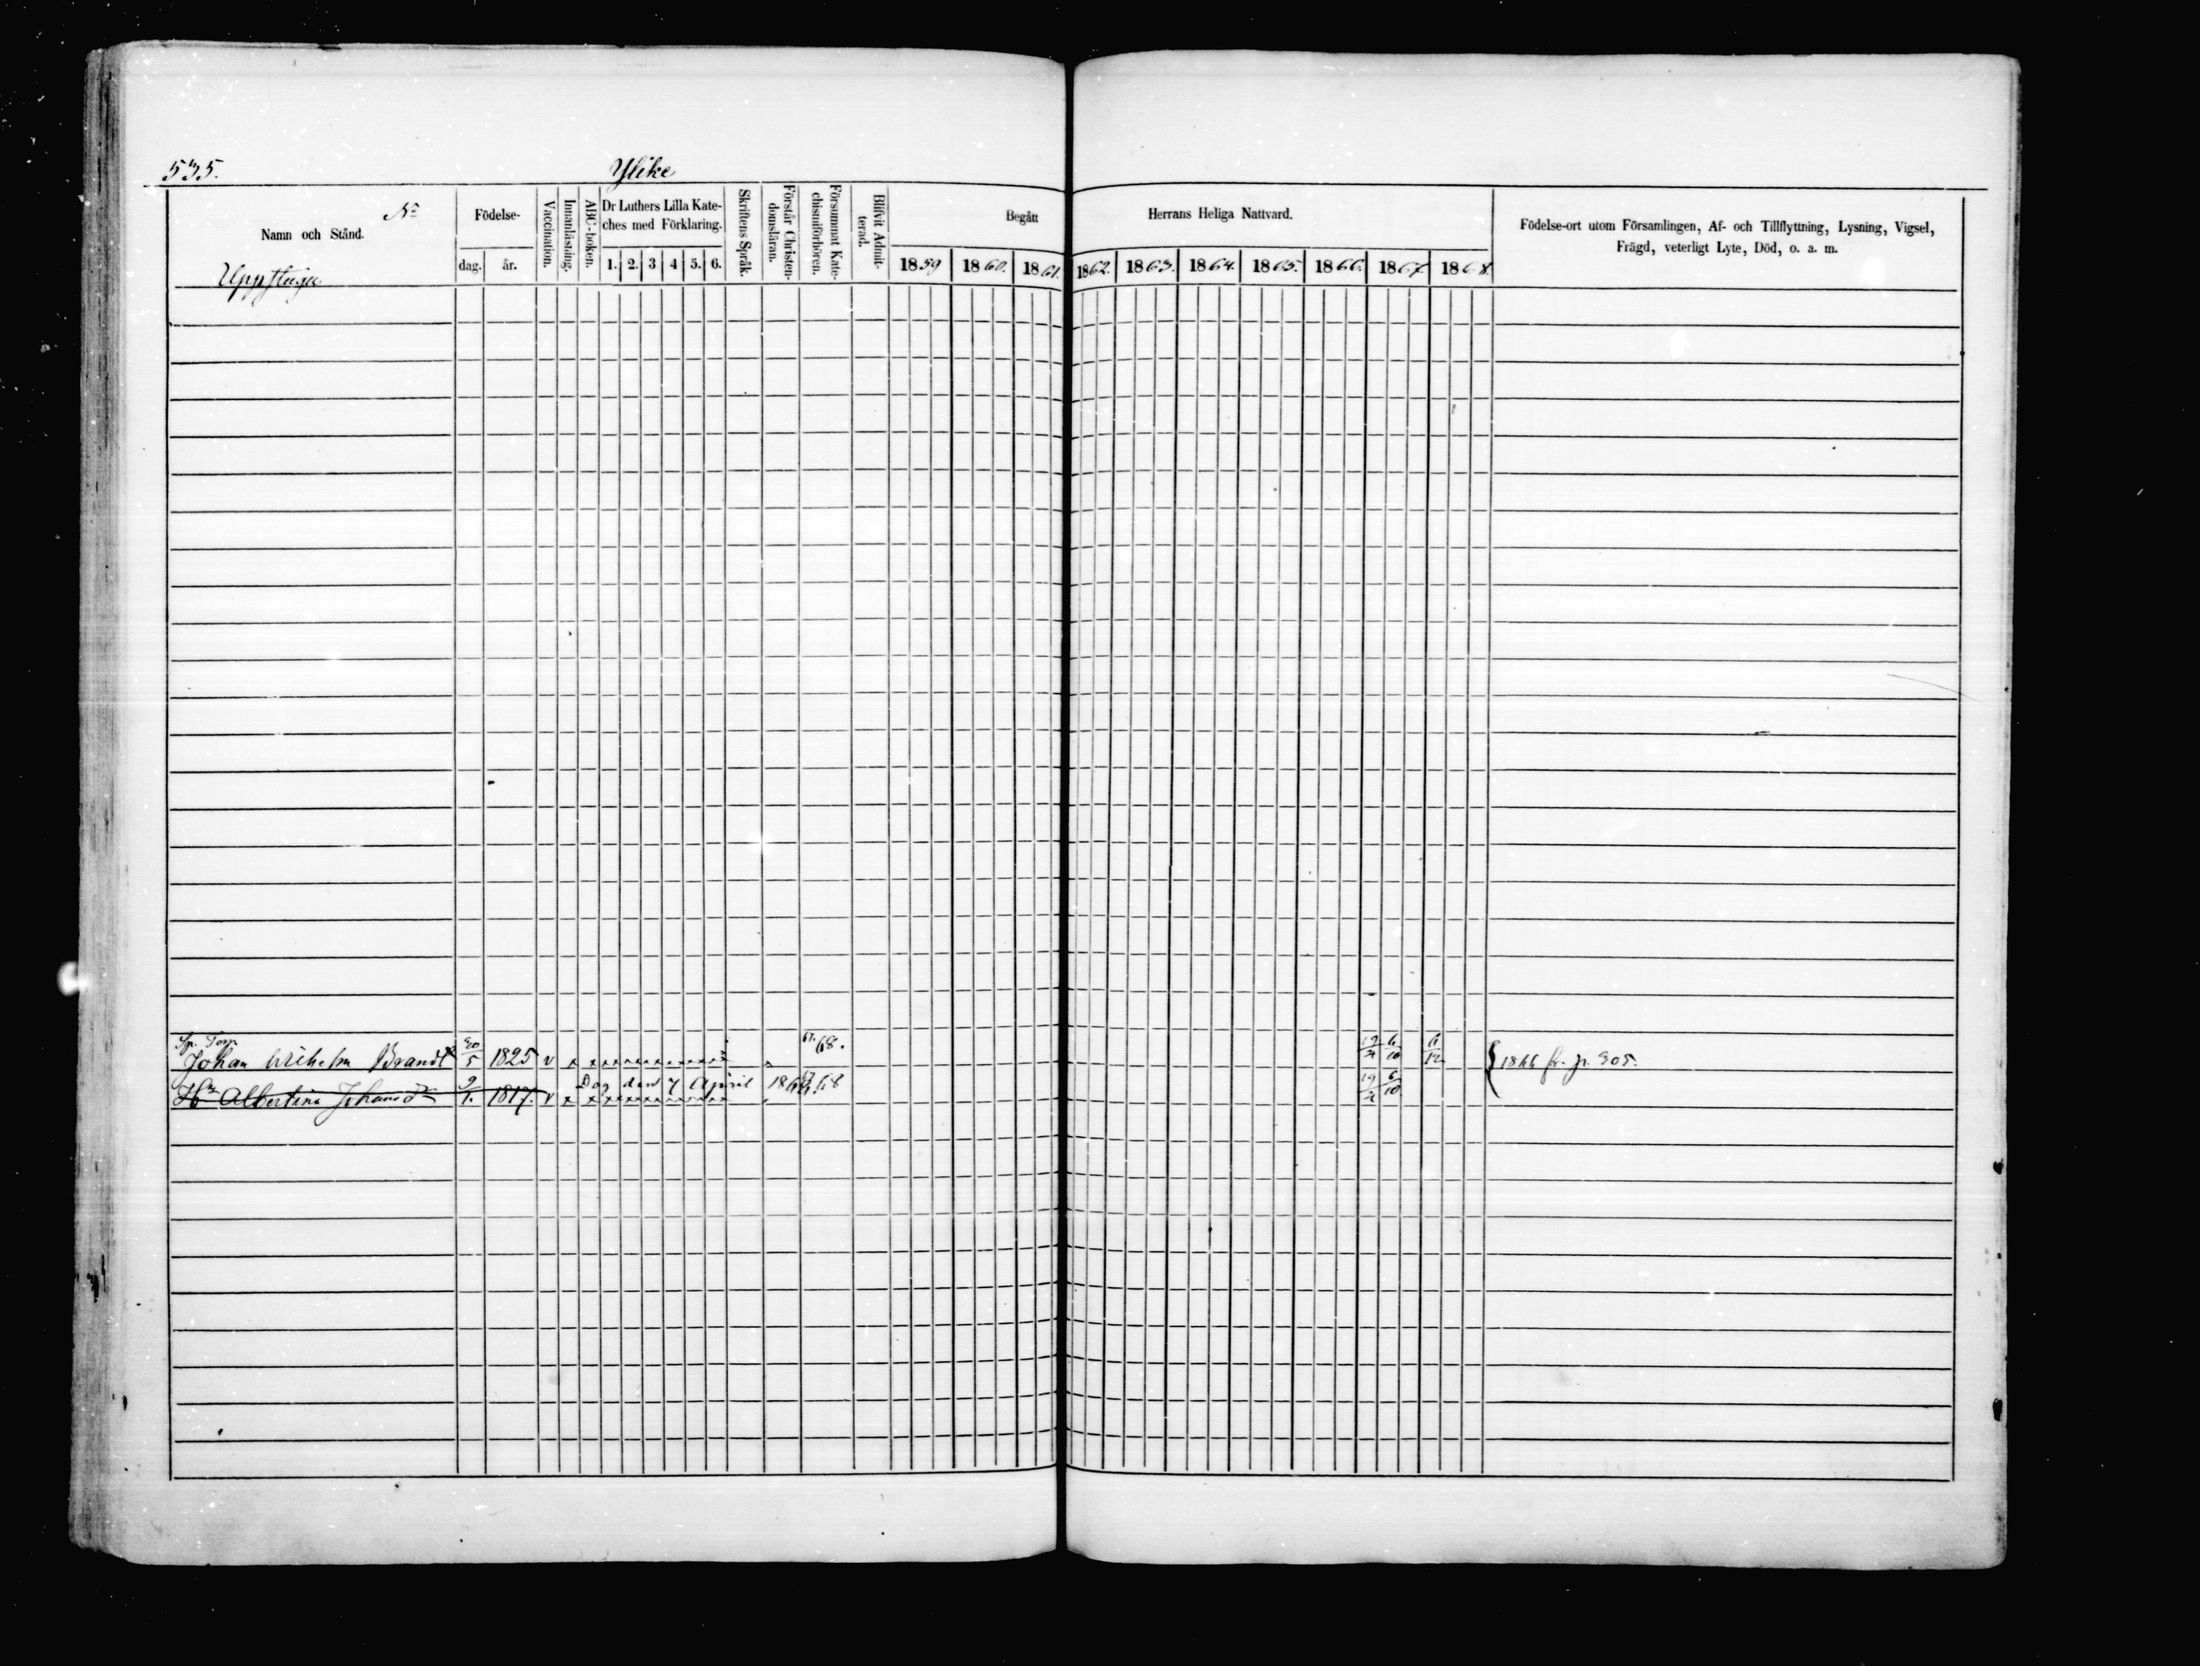 535.
Ylike
Namn och Stånd. No
Uppstuga
Födelse-
dag. år.
Vaccination.
Innanläsning.
ABC-boken.
Dr Luthers Lilla Kate-
ches med Förklaring.
1. 2. 3 4 5. 6.
Skriftens Språk.
Förstår Christen-
domsläran.
Försummat Kate-
chismiförhören.
Blifvit Admit-
terad.
Begått Herrans Heliga Nattvard.
1859 1860. 1861. 1862. 1863. 1864. 1865. 1866. 1867. 1868.
Födelse-ort utom Församlingen, Af- och Tillflyttning, Lysning, Vigsel,
Frägd, veterligt Lyte, Död, o. a. m.
Torp.
Johan Wilhelm Brandt 30/5 1825 v x x x x x x x 67. 68. 6/10 1866 fr. p. 305.
Död den 7 April 1868
Hu Albertina Johansdr 9/1. 1817. v x x x x x x x 6/10